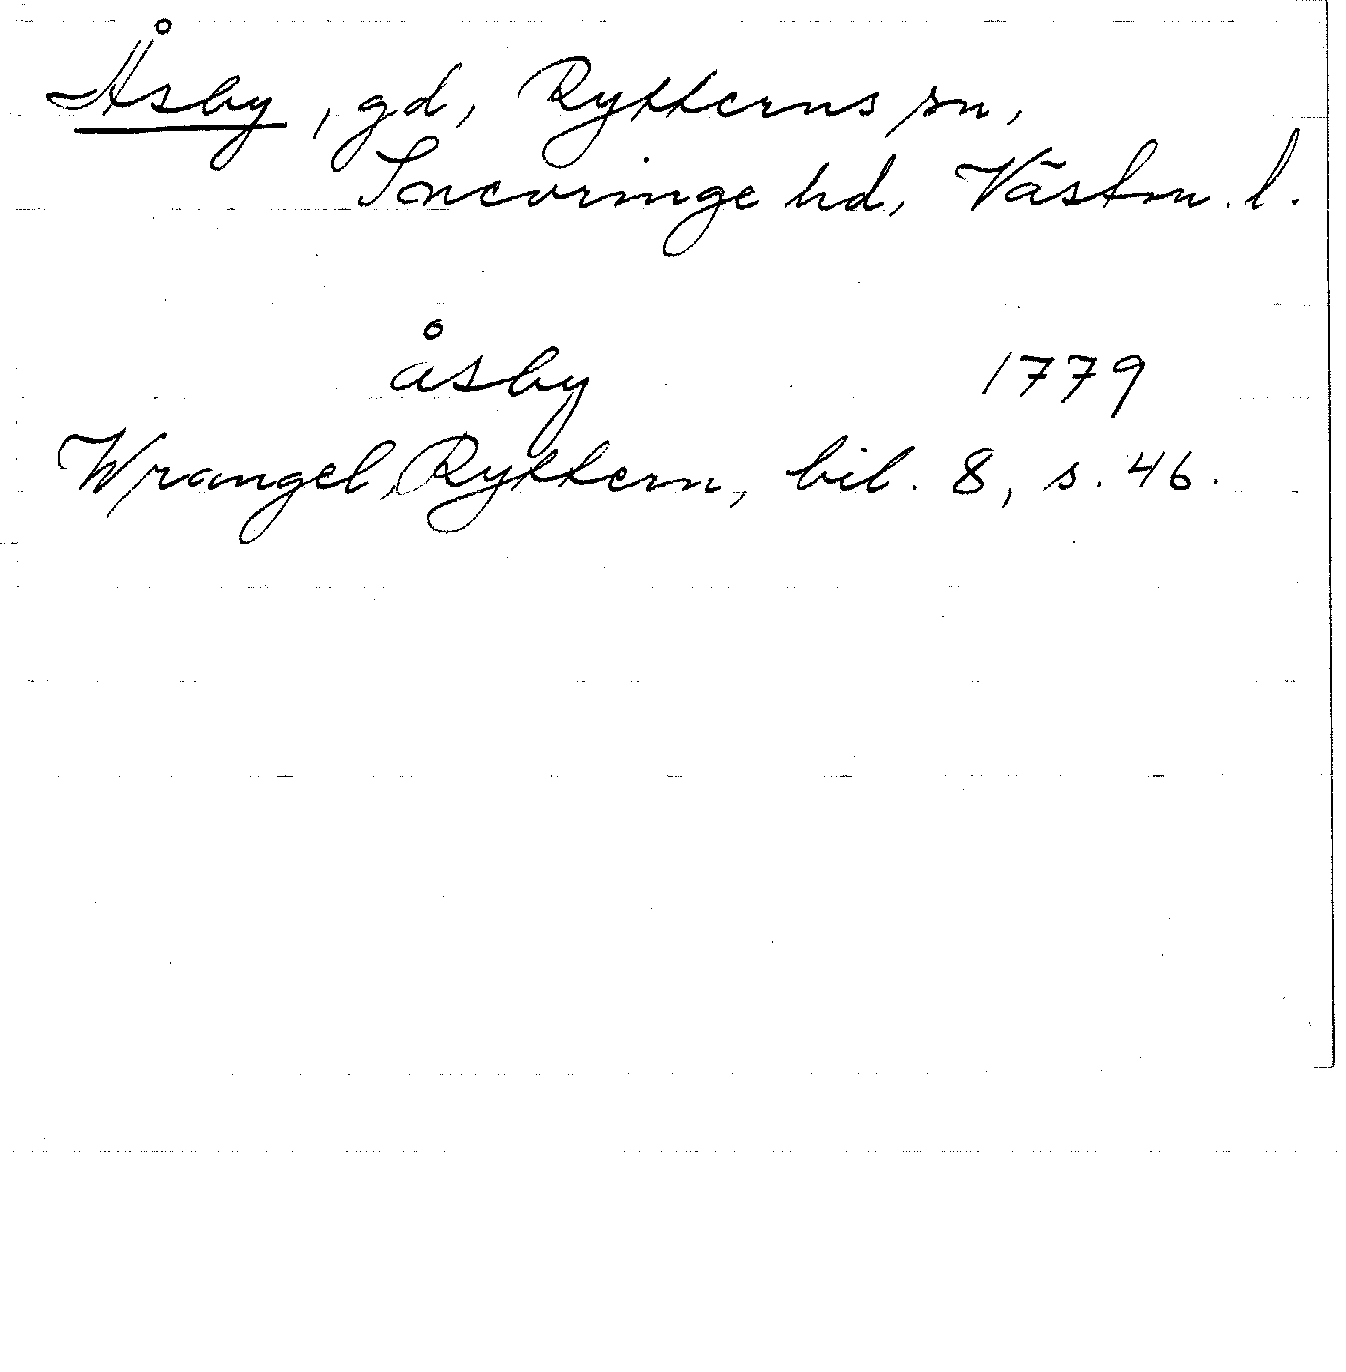 Åsby, gd, Rytterns sn,
Snevringe hd, Västm. l.
åsby 1779
Wrangel, Ryttern, bil. 8, s. 46.